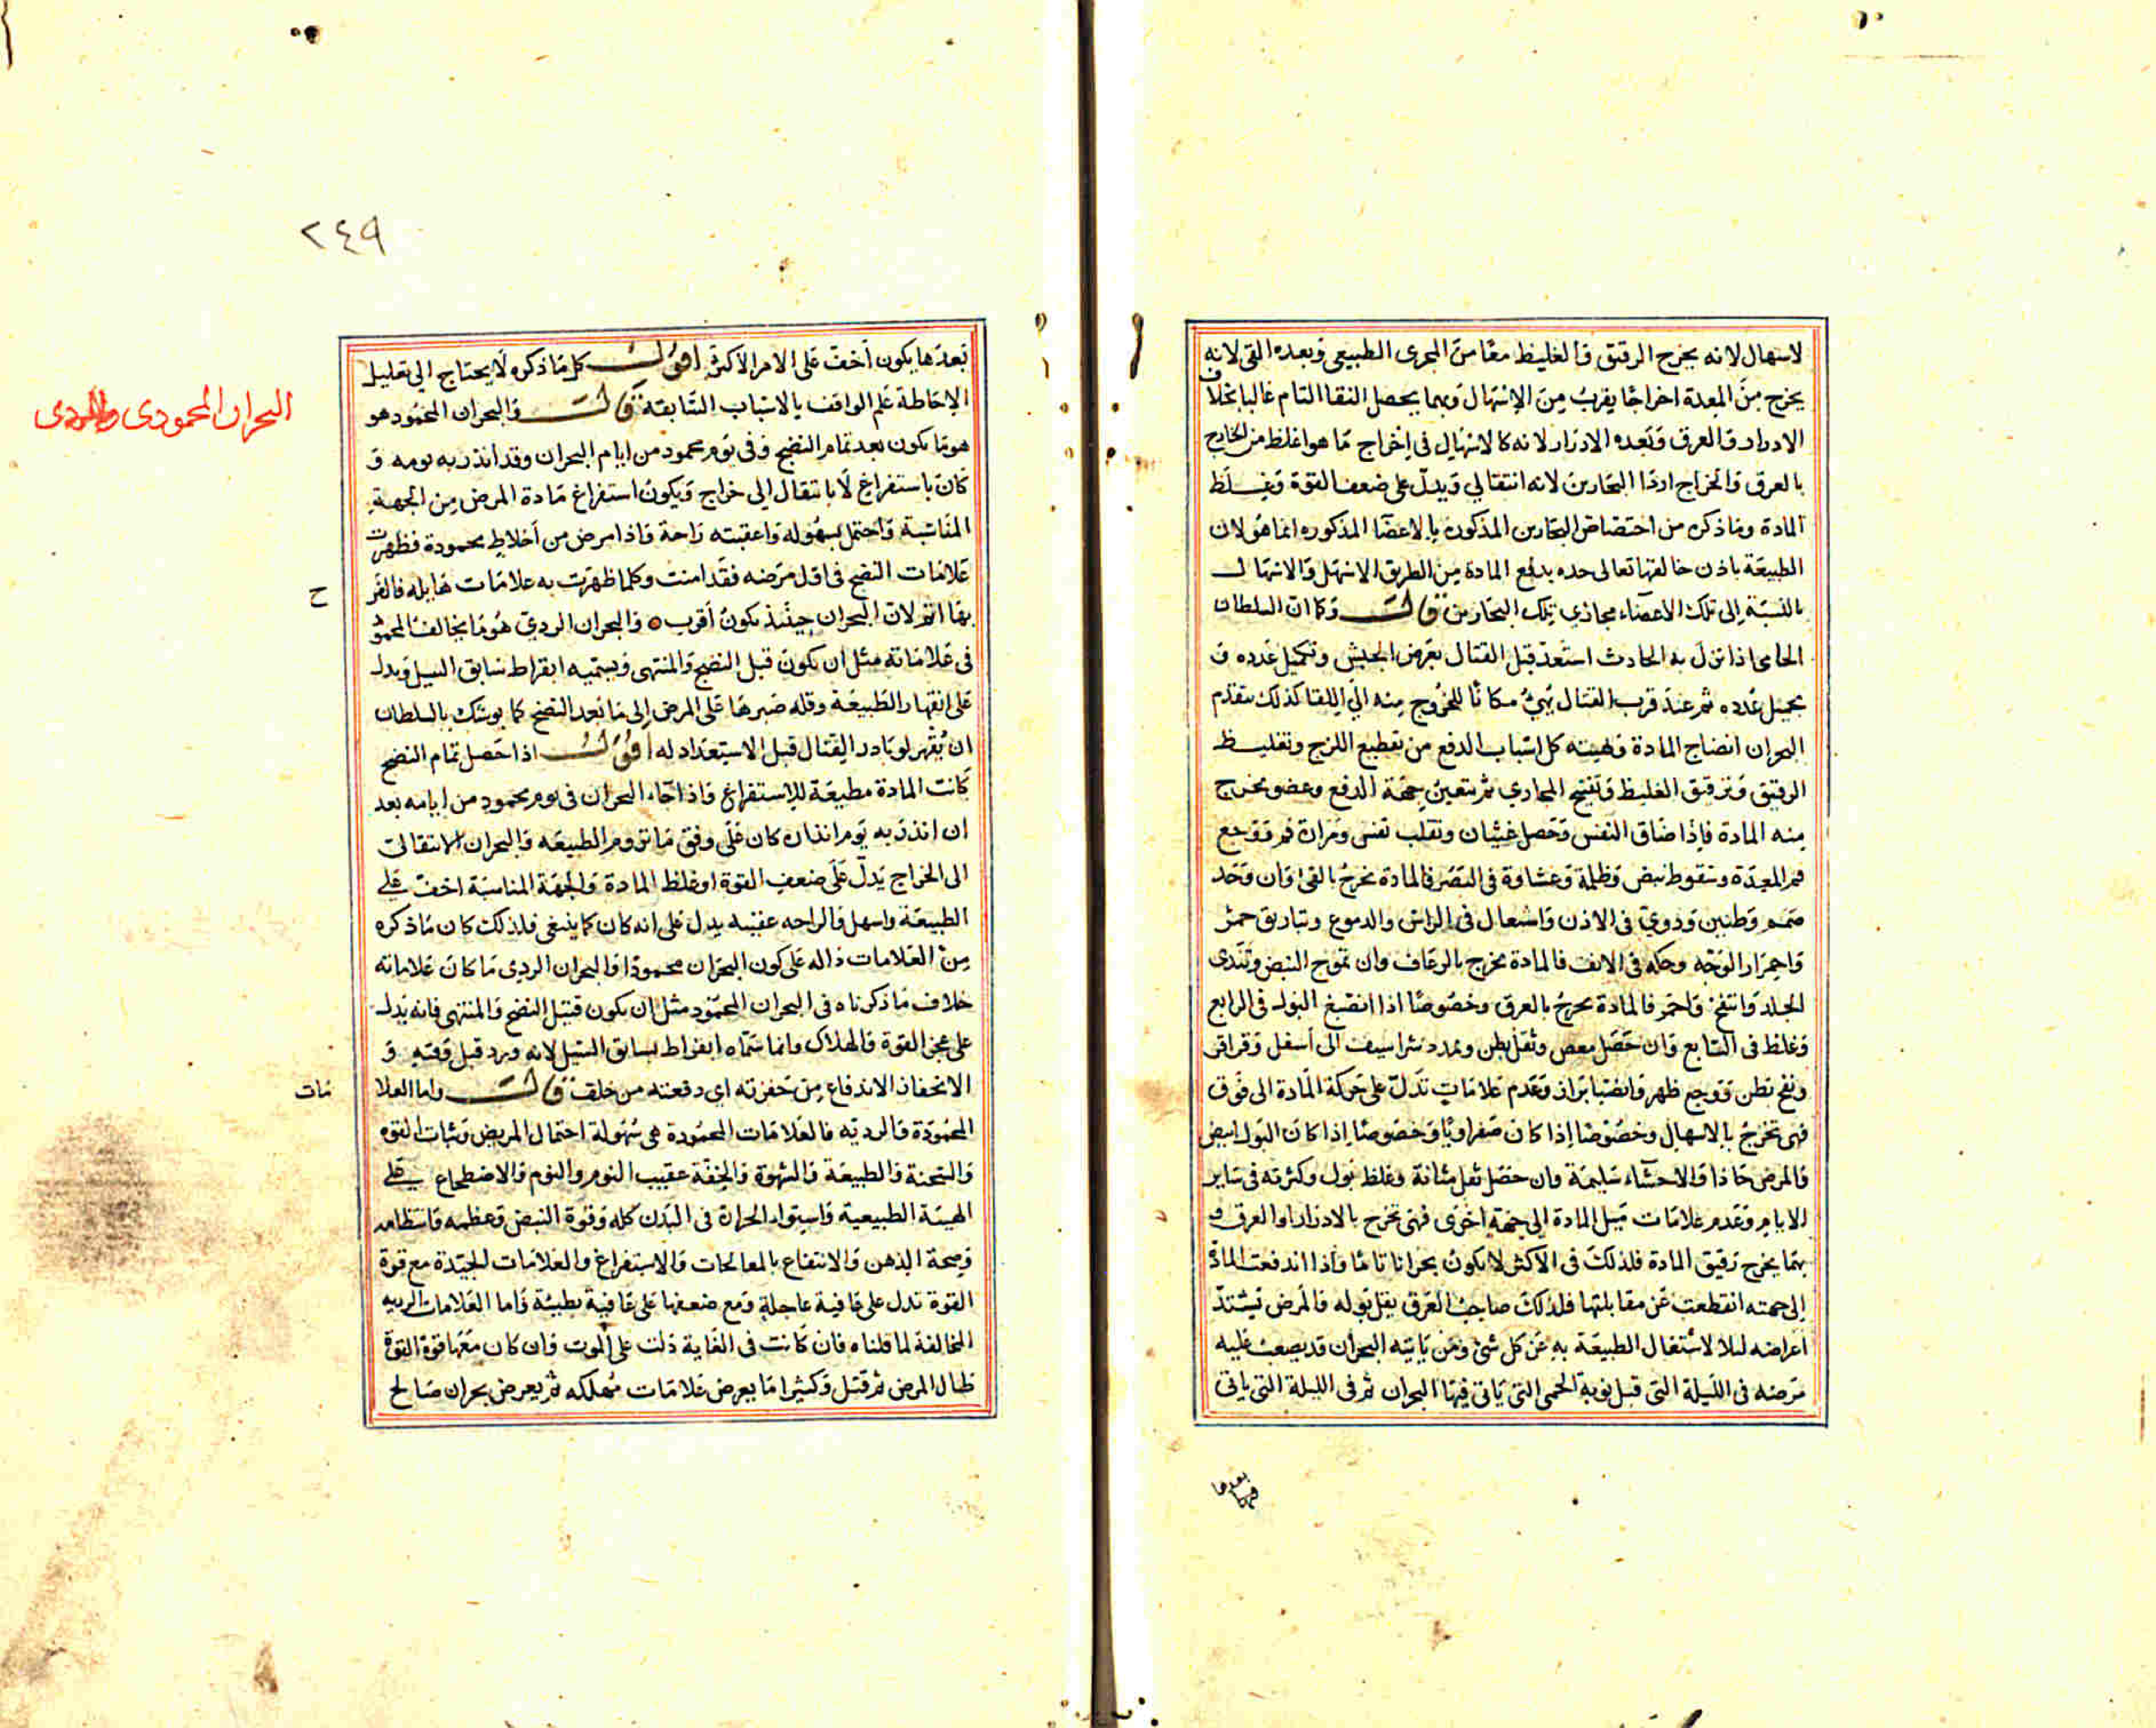 لاسهال لانه يخرج الرقيق والغليظ معًا من المجرى الطبيعى وبعده القى لانه
يخرج من المعدة اخراجًا يقرب من الاسهال وبهما يحصل النقا التام غالبا بخلاف
الادرار والعرق وبعده الادرار لانه كالاسهال فى اخراج ما هو اغلظ من الخارج
بالعرق والخراج اردا البحارين لانه انتقالي ويدل على ضعف القوة وغلظ
المادة وما ذكره من اختصاص البحارين المذكورة بالاعضا المذكوره انما هو لان
الطبيعة باذن خالقها تعالى حده بدفع المادة من الطريق الاسهل والاسهال
بالنسبة إلى تلك الاعضاء مجاذي تلك البحارين قال وكما ان السلطان
الحامى اذا نزل به الحادث استعد قبل القتال بعرض الجيش وتكميل عدده و
تجميل عدده ثم عند قرب القتال يهيئ مكانًا للخروج منه الي اللقا كذلك يتقدم
البحران انضاج المادة وتهيئه كل اسباب الدفع من تقطيع اللزج وتغليظ
الرقيق وترقيق الغليظ وتفتيح المجاري ثم يتعين جهة الدفع وعضو مخرج
منه المادة فإذا ضاق النفس وحصل غثيان وتقلب نفس ومرارة فم ووجع
فم المعدة وسقوط نبض وظلمة وغشاوة فى البصر فالمادة تخرج بالقى وان وجد
صمم وطنين ودوي فى الاذن واشتعال فى الراس والدموع وتباريق حمر
واحمرار الوجه وحكه فى الانف فالمادة تخرج بالرعاف وان تموج النبض وتندى
الجلد وانتفخ واحمر فالمادة تخرج بالعرق وخصوصًا اذا انصبغ البول فى الرابع
وغلظ فى السابع وان حصل مغص وثقل بطن وتمدد شراسيف الى أسفل وقراقر
ونفخ بطن ووجع ظهر وانصباب براز وعدم علامات تدل على حركة المادة الى فوق
فهى تخرج بالاسهال وخصوصًا إذا كان صفراويًا وخصوصًا إذا كان البول ابيض
والمرض حادا والاحشاء سليمة وان حصل ثقل مثانة وغلظ بول وكثرته فى ساير
الايام وعدم علامات ميل المادة الى جهة اخرى فهى تخرج بالادرار او العرق و
بهما يخرج رقيق المادة فلذلك فى الاكثر لا يكون بحرانا تامًا واذا اندفعت المادة
إلى جهته انقطعت عن مقابلتها فلذلك صاحب العرق يقل بوله والمرض تشتد
أعراضه ليلا لاشتغال الطبيعة به عن كل شئ ومن ياتيه البحران قد يصعب عليه
مرضه فى الليلة التى قبل نوبة الحمى التى ياتى فيها البحران ثم فى الليلة التى ياتى
فيها
بعدها
٢٤٩
بعدها يكون أخف على الامر الاكثر اقول كل ما ذكره لا يحتاج الي تعليل
الاحاطة علم الواقف بالاسباب السابقة قال والبحران المحمود هو
هو ما يكون بعد تمام النضج وفى يوم محمود من ايام البحران وقد انذر به يومه و
كان باستفراغ لا بانتقال الي خراج ويكون استفراغ مادة المرض من الجهة
المناسبة واحتمل بسهوله واعقبته راحة واذا مرض من أخلاط محمودة فظهرت
علامات النضج فى اول مرضه فقد امنت وكلما ظهرت به علامات هايله فالفر
ح
بها اتم لان البحران حينئذ يكون أقرب والبحران الردي هو ما يخالف المحمود
فى علاماته مثل ان يكون قبل النضج والمنتهى ويسميه ابقراط سابق السيل ويدل
على انقهار الطبيعة وقله صبرها على المرض إلى ما بعد النضج كما يوشك بالسلطان
ان يقهر لو بادر القتال قبل الاستعداد له اقول اذا حصل تمام النضج
كانت المادة مطيعة للاستفراغ واذا جاء البحران فى يوم محمود من ايامه بعد
ان انذر به يوم انذاره كان على وفق ما تروم الطبيعه والبحران الانتقالى
الى الخراج يدل على ضعف القوة او غلظ المادة والجهة المناسبة اخف على
الطبيعة واسهل والراحه عقيبه يدل على انه كان كما ينبغى فلذلك كان ما ذكره
من العلامات داله على كون البحران محمودًا والبحران الردى ما كان علاماته
خلاف ما ذكرناه فى البحران المحمود مثل ان يكون قبل النضج والمنتهى فانه يدل
على عجز القوة والهلاك وانما سماه ابقراط بسابق السيل لانه ورد قبل وقته و
الانحفاز الاندفاع من حفزته اي دفعته من خلف قال واما العلا
مات
المحمودة والرديه فالعلامات المحمودة هى سهولة احتمال المريض وثبات القوه
والسحنة والطبيعة والشهوة والخفة عقيب النوم والنوم والاضطجاع على
الهيئة الطبيعية واستواء الحرارة فى البدن كله وقوة النبض وعظمه وانتظامه
وصحة الذهن والانتفاع بالمعالجات والاستفراغ والعلامات الجيدة مع قوة
القوة تدل على عافية عاجلة ومع ضعفها على عافية بطيئة واما العلامات الرديه
المخالفة لما قلناه فان كانت فى الغاية دلت على الموت وان كان معها قوة القوة
طال المرض ثم قتل وكثيرا ما يعرض علامات مهلكه ثم يعرض بحران صالح
البحران المحمودى والردى